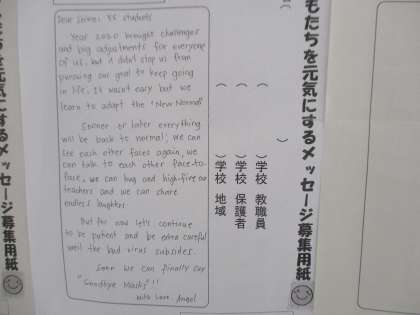 Dear Seimei ES students
Year 2020 brought challenges
and big adjustments for everyone
of us, but it didn't stop us from
pursuing our goal to keep going
in life. It wasn't easy but we
learn to adapt the "New Normal"
Sooner or later everything
will be back to normal; we can
see each other faces again, we
can talk to each other face-to-
face, we can hug and high-five our
teachers and we can share
endless laughter.
But for now let's continue
to be patient and be extra careful
until the bad virus subsides.
Soon we can finally say
"Goodbye Masks"!!
With Love, Angel
もたちを元気にするメッセージ募集用紙
( )学校 教職員
( )学校 保護者
( )学校 地域
メッセージ募集用紙